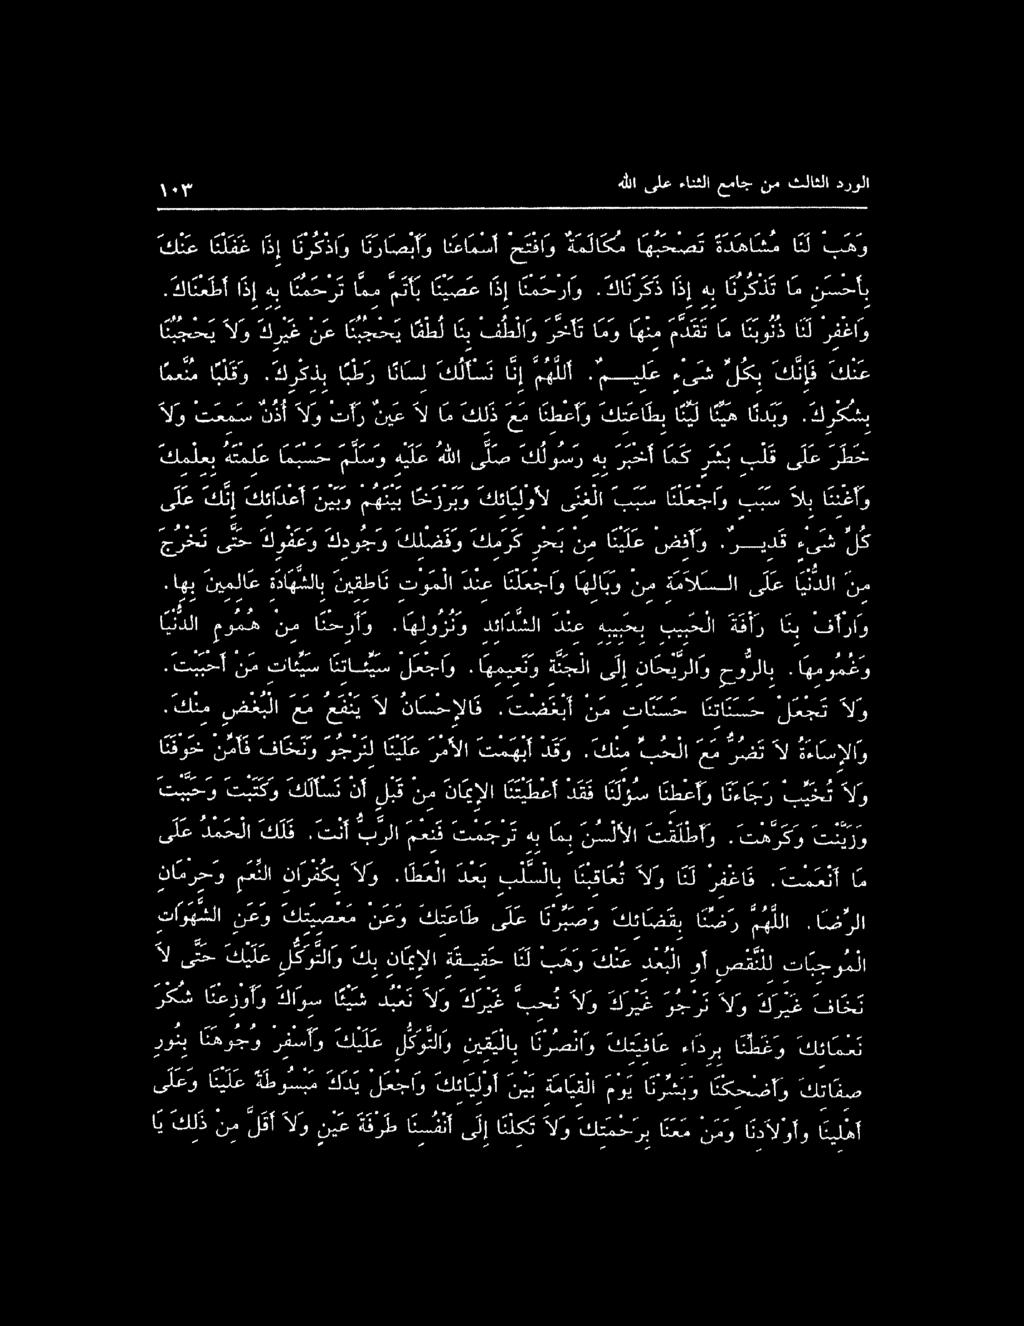 الورد الثالث من جامع الثناء على الله ١٠٣
وَهَبْ لَنَا مُشَاهَدَةً تَصْحَبُهَا مُكَالَمَةٌ وَافْتَحْ أَسْمَاعَنَا وَأَبْصَارَنَا وَاذْكُرْنَا إِذَا غَفَلْنَا عَنْكَ
بِأَحْسَنِ مَا تَذْكُرُنَا بِهِ إِذَا ذَكَرْنَاكَ. وَارْحَمْنَا إِذَا عَصَيْنَا بِأَتَمِّ مِمَّا تَرْحَمُنَا بِهِ إِذَا أَطَعْنَاكَ.
وَاغْفِرْ لَنَا ذُنُوبَنَا مَا تَقَدَّمَ مِنْهَا وَمَا تَأَخَّرَ وَالْطُفْ بِنَا لُطْفًا يَحْجُبُنَا عَنْ غَيْرِكَ وَلاَ يَحْجُبُنَا
عَنْكَ فَإِنَّكَ بِكُلِّ شَىْءٍ عَلِيــمٌ. اَللَّهُمَّ إِنَّا نَسْأَلُكَ لِسَانًا رَطْبًا بِذِكْرِكَ. وَقَلْبًا مُنَّعمًا
بِشُكْرِكَ. وَبَدَنًا هَيِّنًا لَيِّنًا بِطَاعَتِكَ وَأَعْطِنَا مَعَ ذَلِكَ مَا لاَ عَيْنٌ رَأَتْ وَلاَ أُذُنٌ سَمِعَتْ وَلاَ
خَطَرَ عَلَى قَلْبِ بَشَرٍ كَمَا أَخْبَرَ بِهِ رَسُولُكَ صَلَّى اللهُ عَلَيْهِ وَسَلَّمَ حَسْبَمَا عَلِمْتَهُ بِعِلْمِكَ
وَأَغْنِنَا بِلاَ سَبَبٍ وَاجْعَلْنَا سَبَبَ الْغِنَى لأَوْلِيَائِكَ وَبَرْزَخًا بَيْنَهُمْ وَبَيْنَ أَعْدَائِكَ إِنَّكَ عَلَى
كُلِّ شَىْءٍ قَدِيــرٌ. وَأَفِضْ عَلَيْنَا مِنْ بَحْرِ كَرَمِكَ وَفَضْلِكَ وَجُودِكَ وَعَفْوِكَ حَتَّى نَخْرُجَ
مِنَ الدُّنْيَا عَلَى الــسَلاَمَةِ مِنْ وَبَالِهَا وَاجْعَلْنَا عِنْدَ الْمَوْتِ نَاطِقِينَ بِالشَّهَادَةِ عَالِمِينَ بِهَا.
وَارْأَفْ بِنَا رَأْفَةَ الْحَبِيبِ بِحَبِيبِهِ عِنْدَ الشَّدَائِدِ وَنُزُولِهَا. وَأَرِحْنَا مِنْ هُمُومِ الدُّنْيَا
وَغُمُومِهَا. بِالرَّوْحِ وَالرَّيْحَانِ إِلَى الْجَنَّةِ وَنَعِيمِهَا. وَاجْعَلْ سَيِّئَــاتِنَا سَيِّئَاتِ مَنْ أَحْبَبْتَ.
وَلاَ تَجْعَلْ حَسَنَاتِنَا حَسَنَاتِ مَنْ أَبْغَضْتَ. فَالإِحْسَانُ لاَ يَنْفَعُ مَعَ الْبُغْضِ مِنْكَ.
وَالإِسَاءَةُ لاَ تَضُرُّ مَعَ الْحُبِّ مِنْكَ. وَقَدْ أَبْهَمْتَ الأَمْرَ عَلَيْنَا لِنَرْجُوَ وَنَخَافَ فَأَمِّنْ خَوْفَنَا
وَلاَ تُخَيِّبْ رَجَاءَنَا وَأَعْطِنَا سُؤْلَنَا فَقَدْ أَعْطَيْتَنَا الإِيمَانَ مِنْ قَبْلِ أَنْ نَسْأَلَكَ وَكَتَبْتَ وَحَبَّبْتَ
وَزَيَّنْتَ وَكَرَّهْتَ. وَأَطْلَقْتَ الأَلْسُنَ بِمَا بِهِ تَرْجَمْتَ فَنِعْمَ الرَّبُّ أَنْتَ. فَلَكَ الْحَمْدُ عَلَى
مَا أَنْعَمْتَ. فَاغْفِرْ لَنَا وَلاَ تُعَاقِبْنَا بِالسَّلْبِ بَعْدَ الْعَطَا. وَلاَ بِكُفْرَانِ النِّعَمِ وَحِرْمَانِ
الرِّضَا. اللَّهُمَّ رَضِّنَا بِقَضَائِكَ وَصَبِّرْنَا عَلَى طَاعَتِكَ وَعَنْ مَعْصِيَتِكَ وَعَنِ الشَّهَوَاتِ
الْمُوجِبَاتِ لِلنَّقْصِ أَوِ الْبُعْدِ عَنْكَ وَهَبْ لَنَا حَقِيــقَةَ الإِيمَانِ بِكَ وَالتَّوَكُّلِ عَلَيْكَ حَتَّى لاَ
نَخَافَ غَيْرَكَ وَلاَ نَرْجُوَ غَيْرَكَ وَلاَ نُحِبَّ غَيْرَكَ وَلاَ نَعْبُدَ شَيْئًا سِوَاكَ وَأَوْزِعْنَا شُكْرَ
نَعْمَائِكَ وَغَطِّنَا بِرِدَاءِ عَافِيَتِكَ وَانْصُرْنَا بِالْيَقِينِ وَالتَّوَكُّلِ عَلَيْكَ وَأَسْفِرْ وُجُوهَنَا بِنُورِ
صِفَاتِكَ وَأَضْحِكْنَا وَبَشِّرْنَا يَوْمَ الْقِيَامَةِ بَيْنَ أَوْلِيَائِكَ وَاجْعَلْ يَدَكَ مَبْسُوطَةً عَلَيْنَا وَعَلَى
أَهْلِينَا وَأَوْلاَدِنَا وَمَنْ مَعَنَا بِرَحْمَتِكَ وَلاَ تَكِلْنَا إِلَى أَنْفُسِنَا طَرْفَةَ عَيْنٍ وَلاَ أَقَلَّ مِنْ ذَلِكَ يَا